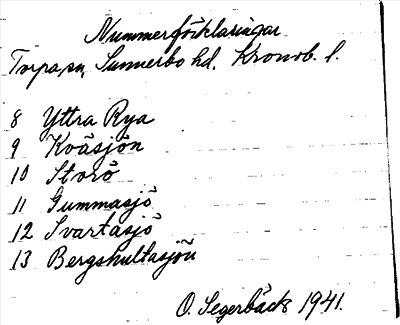 Nummerförklaringar
Torpa sn, Sunnerbo hd. Kronob. l.
8 Yttra Rya
9 Kvåsjön
10 Storö
11 Gummasjö
12 Svartasjö
13 Bergshultasjön
O. Segerbäck 1941.